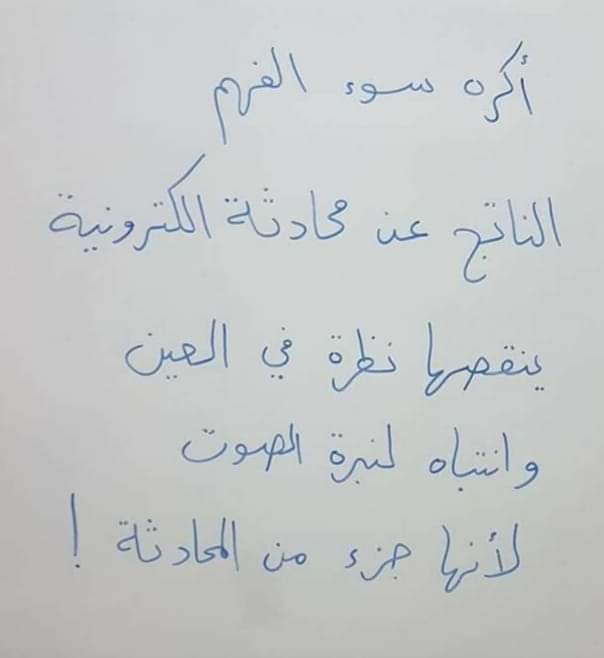 أكره سوء الفهم
الناتج عن محادثة الكترونية
ينقصها نظرة في العين
وانتباه لنبرة الصوت
لأنها جزء من المحادثة !